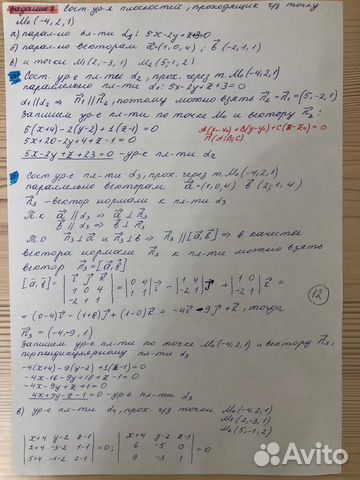 Задание 8. Сост. ур-я плоскостей, проходящих ч/з точку
M₀(-4,2,1)
а) парал-но пл-ти α₁: 5x-2y+z+3=0
б) парал-но векторам a⃗=(1,0,4); b⃗(-2,1,1)
в) и точки M₁(2,-3,1) M₂(5,-1,2)
Сост. ур-е пл-ти α₂, прох. через т. M₀(-4,2,1)
параллельно пл-ти α₁: 5x-2y+z+3=0
α₁∥α₂ ⇒ n⃗₁∥n⃗₂, поэтому можно взять n⃗₂=n⃗₁=(5,-2,1)
Запишем ур-е пл-ти по точке M₀ и вектору n⃗₂:
5(x+4)-2(y-2)+1(z-1)=0
A(x-x₀)+B(y-y₀)+C(z-z₀)=0
5x+20-2y+4+z-1=0
n⃗(A;B;C)
5x-2y+z+23=0 - ур-е пл-ти α₂
Сост. ур-е пл-ти α₃, прох. через т. M₀(-4,2,1)
параллельно векторам a⃗=(1,0,4) b⃗(-2,1,1)
n⃗₃ - вектор нормали к пл-ти α₃
Т.к. a⃗∥α₃ ⇒ a⃗⊥n⃗₃
b⃗∥α₃ ⇒ b⃗⊥n⃗₃
То n⃗₃⊥a⃗ и n⃗₃⊥b⃗ ⇒ n⃗₃∥[a⃗,b⃗] ⇒ в качестве
вектора нормали n⃗₃ к пл-ти можно взять
вектор n⃗₃=[a⃗,b⃗]
[a⃗,b⃗]=|i⃗ j⃗ k⃗; 1 0 4; -2 1 1|=|0 4; 1 1|i⃗-|1 4; -2 1|j⃗+|1 0; -2 1|k⃗=
12
=(0-4)i⃗-(1+8)j⃗+(1-0)k⃗=-4i⃗-9j⃗+k⃗, тогда
n⃗₃=(-4,-9,1)
Запишем ур-е пл-ти по точке M₀(-4,2,1) и вектору n⃗₃,
перпендикулярному пл-ти α₃
-4(x+4)-9(y-2)+1(z-1)=0
-4x-16-9y+18+z-1=0
-4x-9y+z+1=0
4x+9y-z-1=0 - ур-е пл-ти α₃
в) ур-е пл-ти α₄, прох. ч/з точки M₀(-4,2,1)
M₁(2,-3,1)
M₂(5,-1,2)
|x+4 y-2 z-1; 2+4 -3-2 1-1; 5+4 -1-2 2-1|=0; |x+4 y-2 z-1; 6 -5 0; 9 -3 1|=0
Avito